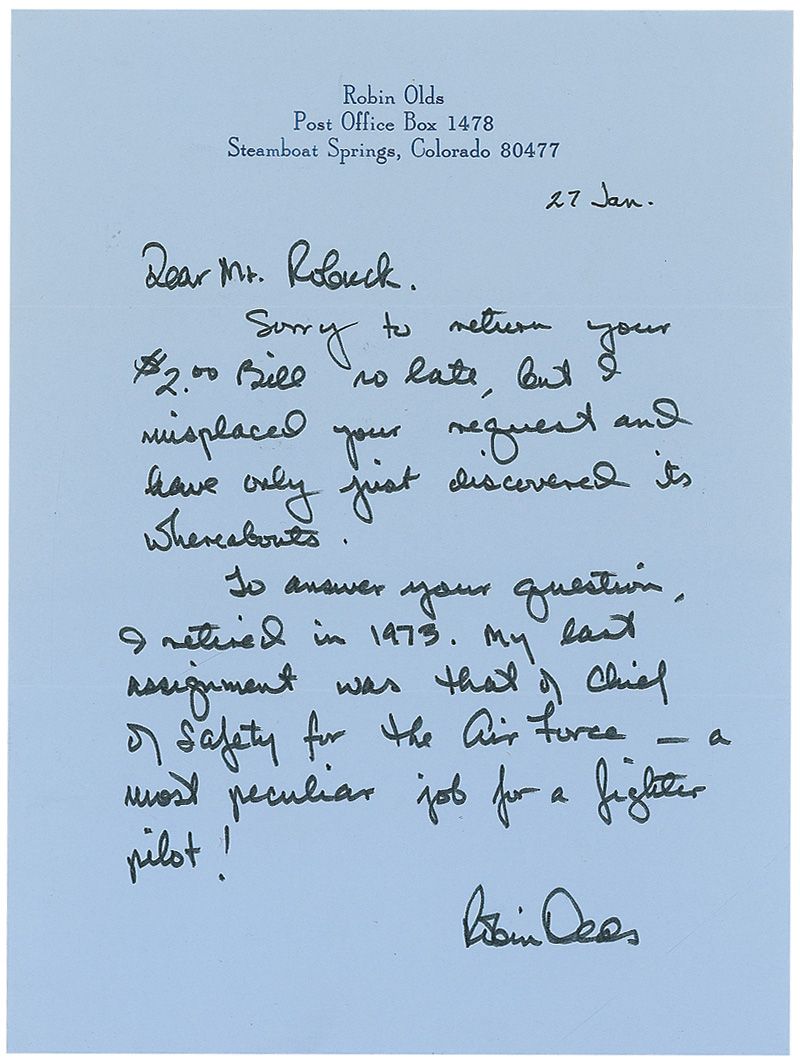 Robin Olds
Post Office Box 1478
Steamboat Springs, Colorado 80477
27 Jan.
Dear Mr. Robuck.
Sorry to return your
$2.00 Bill so late, but I
misplaced your request and
have only just discovered its
whereabouts.
To answer your question,
I retired in 1973. My last
assignment was that of Chief
of Safety for the Air Force — a
most peculiar job for a fighter
pilot!
Robin Olds